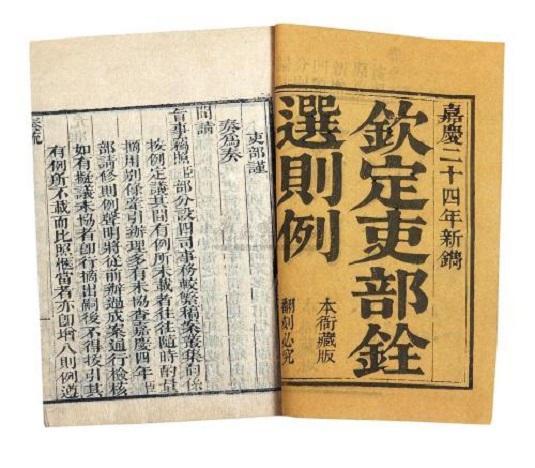 嘉慶二十四年新鐫
欽定吏部銓
選則例
本衙藏版
翻刻必究
吏部謹
奏為奏
聞請
旨事竊照臣部分設四司事務較繁稿案叢集前係
按例定議其間有例所未載者往往隨時酌量
摘用別條牽引辦理多有未協查嘉慶四年臣
部請修則例聲明將從前辦過成案通行檢核
如有擬議未協者即行摘出嗣後不得援引其
有例所不載而比照愜當者亦即增入則例遵